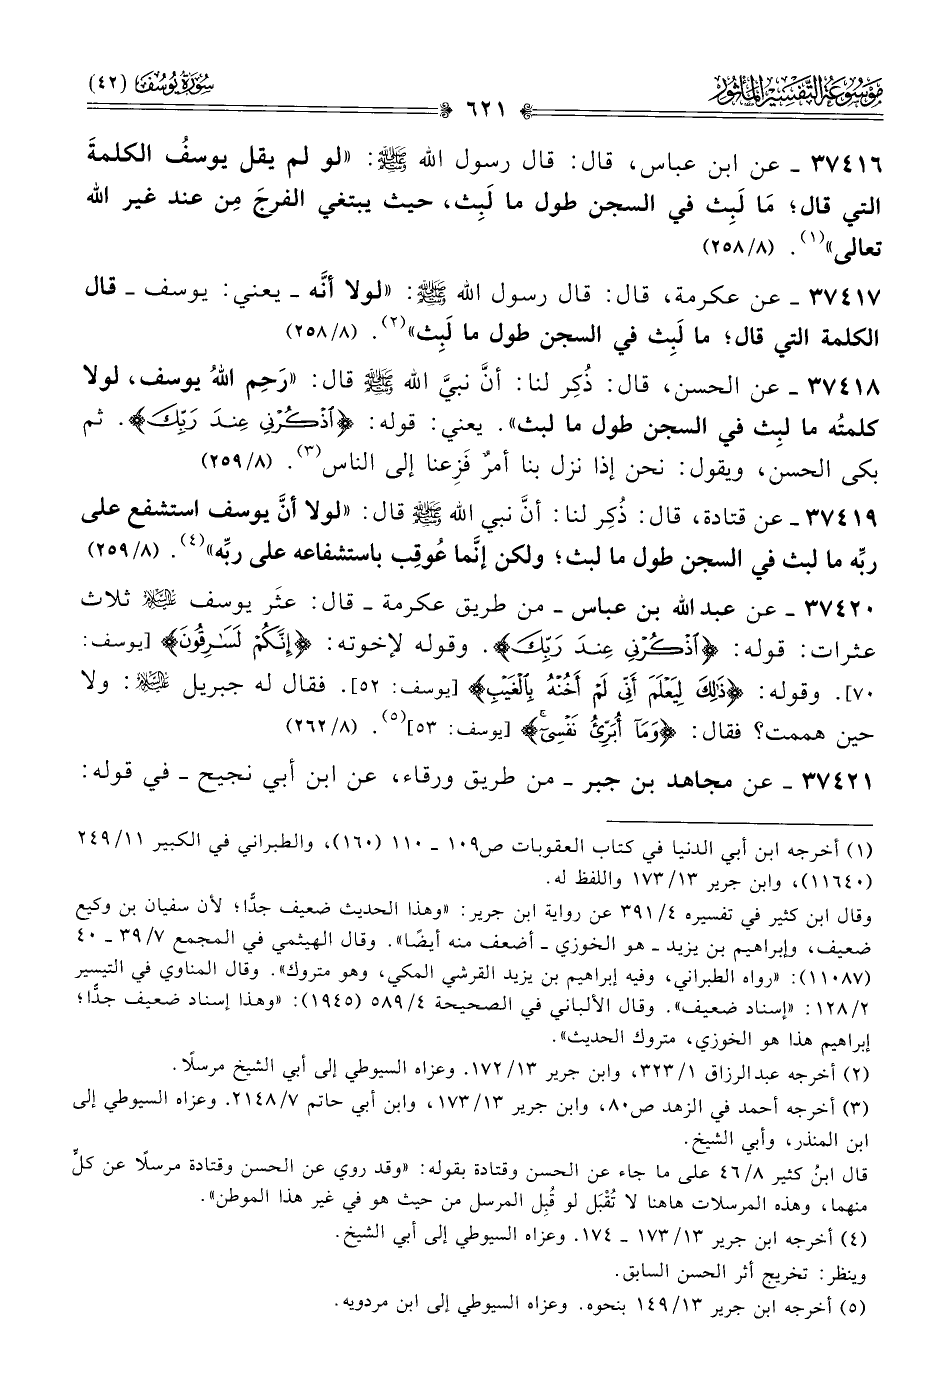 موسوعة التفسير المأثور
سورة يوسف (٤٢)
٦٢١
٣٧٤١٦ ـ عن ابن عباس، قال: قال رسول الله ﷺ: «لو لم يقل يوسفُ الكلمةَ
التي قال؛ مَا لَبِث في السجن طول ما لَبِث، حيث يبتغي الفرجَ مِن عند غير الله
تعالى»(١). (٢٥٨/٨)
٣٧٤١٧ ـ عن عكرمة، قال: قال رسول الله ﷺ: «لولا أنَّه ـ يعني: يوسف ـ قال
الكلمة التي قال؛ ما لَبِث في السجن طول ما لَبِث»(٢). (٢٥٨/٨)
٣٧٤١٨ ـ عن الحسن، قال: ذُكِر لنا: أنَّ نبيَّ الله ﷺ قال: «رَحِم اللهُ يوسف، لولا
كلمتُه ما لبِث في السجن طول ما لبث». يعني: قوله: ﴿اَذْكُرْنِي عِندَ رَبِّكَ﴾. ثم
بكى الحسن، ويقول: نحن إذا نزل بنا أمرٌ فَزِعنا إلى الناس(٣). (٢٥٩/٨)
٣٧٤١٩ ـ عن قتادة، قال: ذُكِر لنا: أنَّ نبي الله ﷺ قال: «لولا أنَّ يوسف استشفع على
ربِّه ما لبث في السجن طول ما لبث؛ ولكن إنَّما عُوقِب باستشفاعه على ربِّه»(٤). (٢٥٩/٨)
٣٧٤٢٠ ـ عن عبد الله بن عباس ـ من طريق عكرمة ـ قال: عثَر يوسف عليه السلام ثلاث
عثرات: قوله: ﴿اَذْكُرْنِي عِندَ رَبِّكَ﴾. وقوله لإخوته: ﴿إِنَّكُمْ لَسَٰرِقُونَ﴾ [يوسف:
٧٠]. وقوله: ﴿ذَٰلِكَ لِيَعْلَمَ أَنِّي لَمْ أَخُنْهُ بِالْغَيْبِ﴾ [يوسف: ٥٢]. فقال له جبريل عليه السلام: ولا
حين هممت؟ فقال: ﴿وَمَا أُبَرِّئُ نَفْسِي﴾ [يوسف: ٥٣](٥). (٢٦٢/٨)
٣٧٤٢١ ـ عن مجاهد بن جبر ـ من طريق ورقاء، عن ابن أبي نجيح ـ في قوله:
(١) أخرجه ابن أبي الدنيا في كتاب العقوبات ص١٠٩ ـ ١١٠ (١٦٠)، والطبراني في الكبير ٢٤٩/١١
(١١٦٤٠)، وابن جرير ١٧٣/١٣ واللفظ له.
وقال ابن كثير في تفسيره ٣٩١/٤ عن رواية ابن جرير: «وهذا الحديث ضعيف جدًّا؛ لأن سفيان بن وكيع
ضعيف، وإبراهيم بن يزيد ـ هو الخوزي ـ أضعف منه أيضًا». وقال الهيثمي في المجمع ٣٩/٧ ـ ٤٠
(١١٠٨٧): «رواه الطبراني، وفيه إبراهيم بن يزيد القرشي المكي، وهو متروك». وقال المناوي في التيسير
١٢٨/٢: «إسناد ضعيف». وقال الألباني في الصحيحة ٥٨٩/٤ (١٩٤٥): «وهذا إسناد ضعيف جدًّا؛
إبراهيم هذا هو الخوزي، متروك الحديث».
(٢) أخرجه عبد الرزاق ٣٢٣/١، وابن جرير ١٧٢/١٣. وعزاه السيوطي إلى أبي الشيخ مرسلًا.
(٣) أخرجه أحمد في الزهد ص٨٠، وابن جرير ١٧٣/١٣، وابن أبي حاتم ٢١٤٨/٧. وعزاه السيوطي إلى
ابن المنذر، وأبي الشيخ.
قال ابنُ كثير ٤٦/٨ على ما جاء عن الحسن وقتادة بقوله: «وقد روي عن الحسن وقتادة مرسلًا عن كلٍّ
منهما، وهذه المرسلات هاهنا لا تُقْبَل لو قُبِل المرسل من حيث هو في غير هذا الموطن».
(٤) أخرجه ابن جرير ١٧٣/١٣ ـ ١٧٤. وعزاه السيوطي إلى أبي الشيخ.
وينظر: تخريج أثر الحسن السابق.
(٥) أخرجه ابن جرير ١٤٩/١٣ بنحوه. وعزاه السيوطي إلى ابن مردويه.